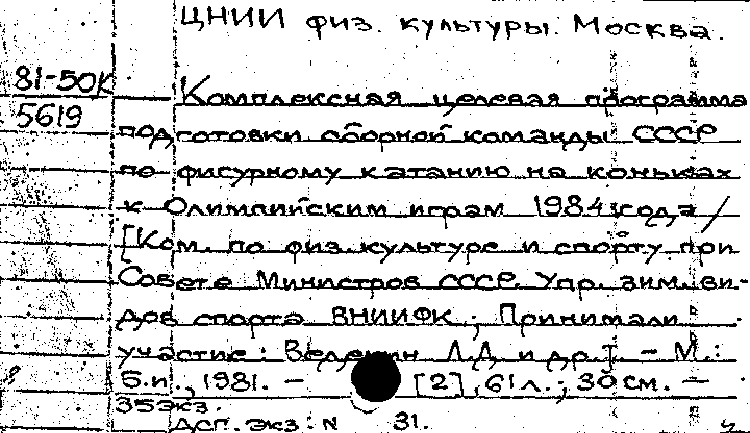 ЦНИИ физ. культуры. Москва.
81-50К
5619
Комплексная целевая программа
подготовки сборной команды СССР
по фигурному катанию на коньках
к Олимпийским играм 1984 года /
[Ком. по физ. культуре и спорту при
Совете Министров СССР. Упр. зим. ви-
дов спорта ВНИИФК; Принимали
участие: Веденин Л.Д. и др.]. - М.:
Б.и., 1981. - [2], 61 л.; 30 см. -
35 экз.
Дсп. Экз: N 31.